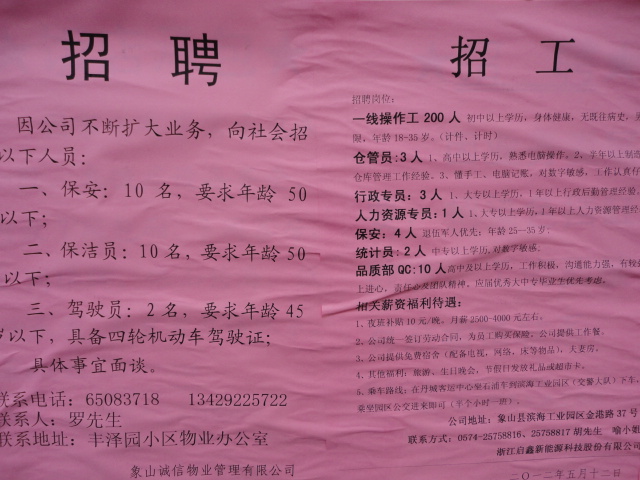 招聘
因公司不断扩大业务，向社会招
以下人员：
一、保安：10名，要求年龄50
以下；
二、保洁员：10名，要求年龄50
以下；
三、驾驶员：2名，要求年龄45
岁以下，具备四轮机动车驾驶证；
具体事宜面谈。
联系电话：65083718 13429225722
联系人：罗先生
联系地址：丰泽园小区物业办公室
象山诚信物业管理有限公司
招工
招聘岗位：
一线操作工200人 初中以上学历，身体健康，无既往病史，
限，年龄18-35岁。（计件、计时）
仓管员：3人 1、高中以上学历，熟悉电脑操作，2、半年以上制造
仓库管理工作经验、3、懂手工、电脑记账，对数字敏感，工作认真仔
行政专员：3人 1、大专以上学历，1年以上行政后勤管理经验
人力资源专员：1人 1、大专以上学历，1年以上人力资源管理经
保安：4人 退伍军人优先；年龄25—35岁；
统计员：2人 中专以上学历，对数字敏感。
品质部QC：10人 高中及以上学历，工作积极，沟通能力强、有较
上进心，责任心及团队精神，应届优秀大中专毕业生优先考虑。
相关薪资福利待遇：
1、夜班补贴10元/晚。月薪2500-4000元左右。
2、公司统一签订劳动合同，为员工购买保险。公司提供工作餐。
3、公司提供免费宿舍（配备电视，网络，床等物品），夫妻房。
4、其他福利：旅游、生日晚会，节假日发放礼品或超市卡。
5、乘车路线：在丹城客运中心坐石浦车到滨海工业园区（交警大队）下车，
乘坐园区公交进来即可（半个小时一班）。
公司地址：象山县滨海工业园区金港路37号
联系方式：0574-25758816、25758817 胡先生 喻小姐
浙江启鑫新能源科技股份有限公司
二〇一二年五月十二日